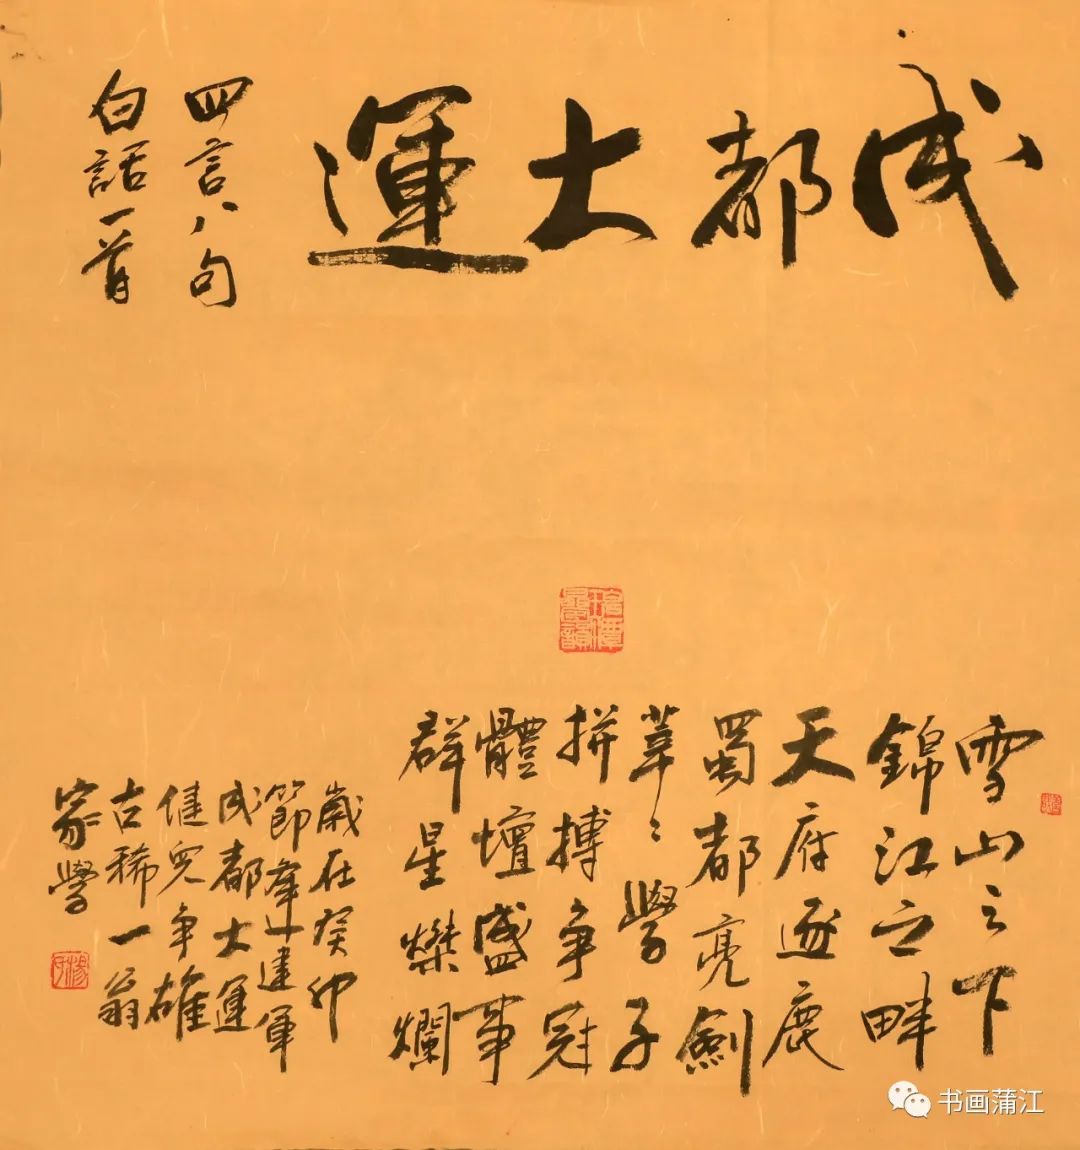 成都大運
四言八句
白話一首
雪山之下
錦江之畔
天府逐鹿
蜀都亮劍
莘〻學子
拼搏争冠
體壇盛事
群星燦爛
歲在癸卯
節逢建軍
成都大運
健兒争雄
古稀一翁
家學
书画蒲江